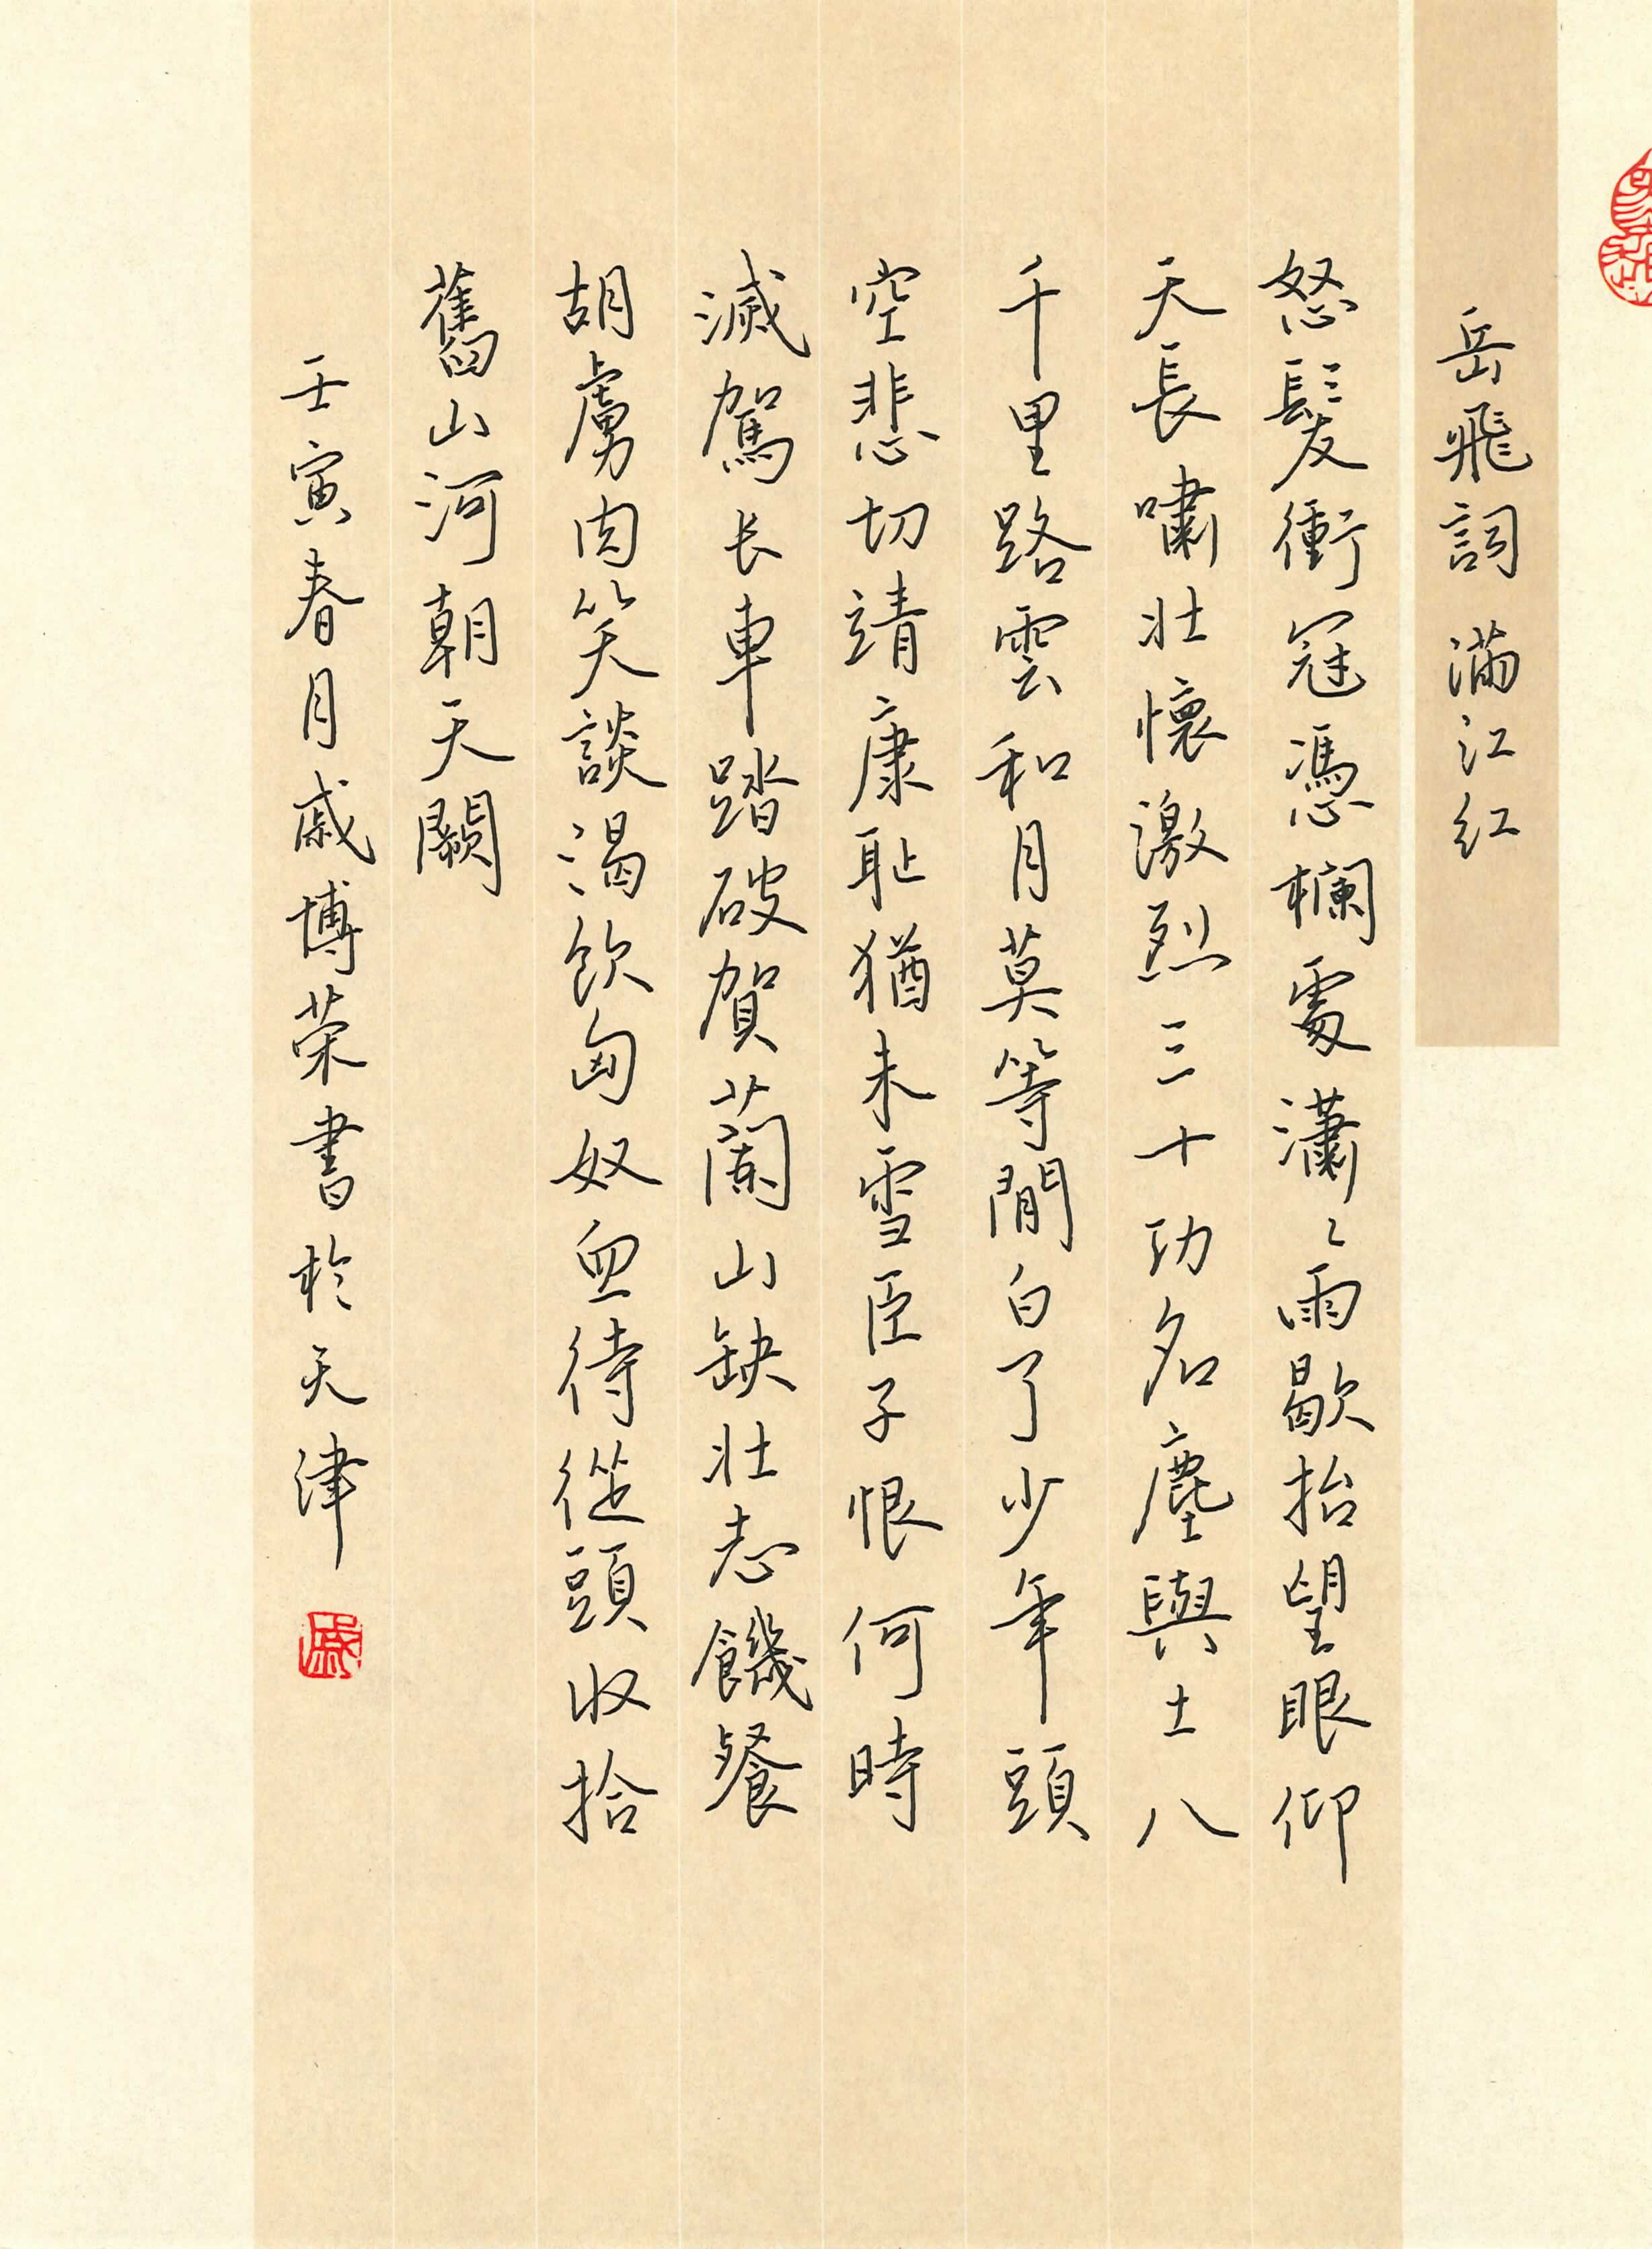 岳飛詞 滿江红
怒髮衝冠馮欄處瀟々雨歇抬望眼仰
天長嘯壯懷激烈三十功名塵與土八
千里路雲和月莫等閒白了少年頭
空悲切靖康耻猶未雪臣子恨何時
滅駕长車踏破賀蘭山缺壯志饑餐
胡虜肉笑談渴飲匈奴血待從頭收拾
舊山河朝天闕
壬寅春月戚博荣書於天津
戚